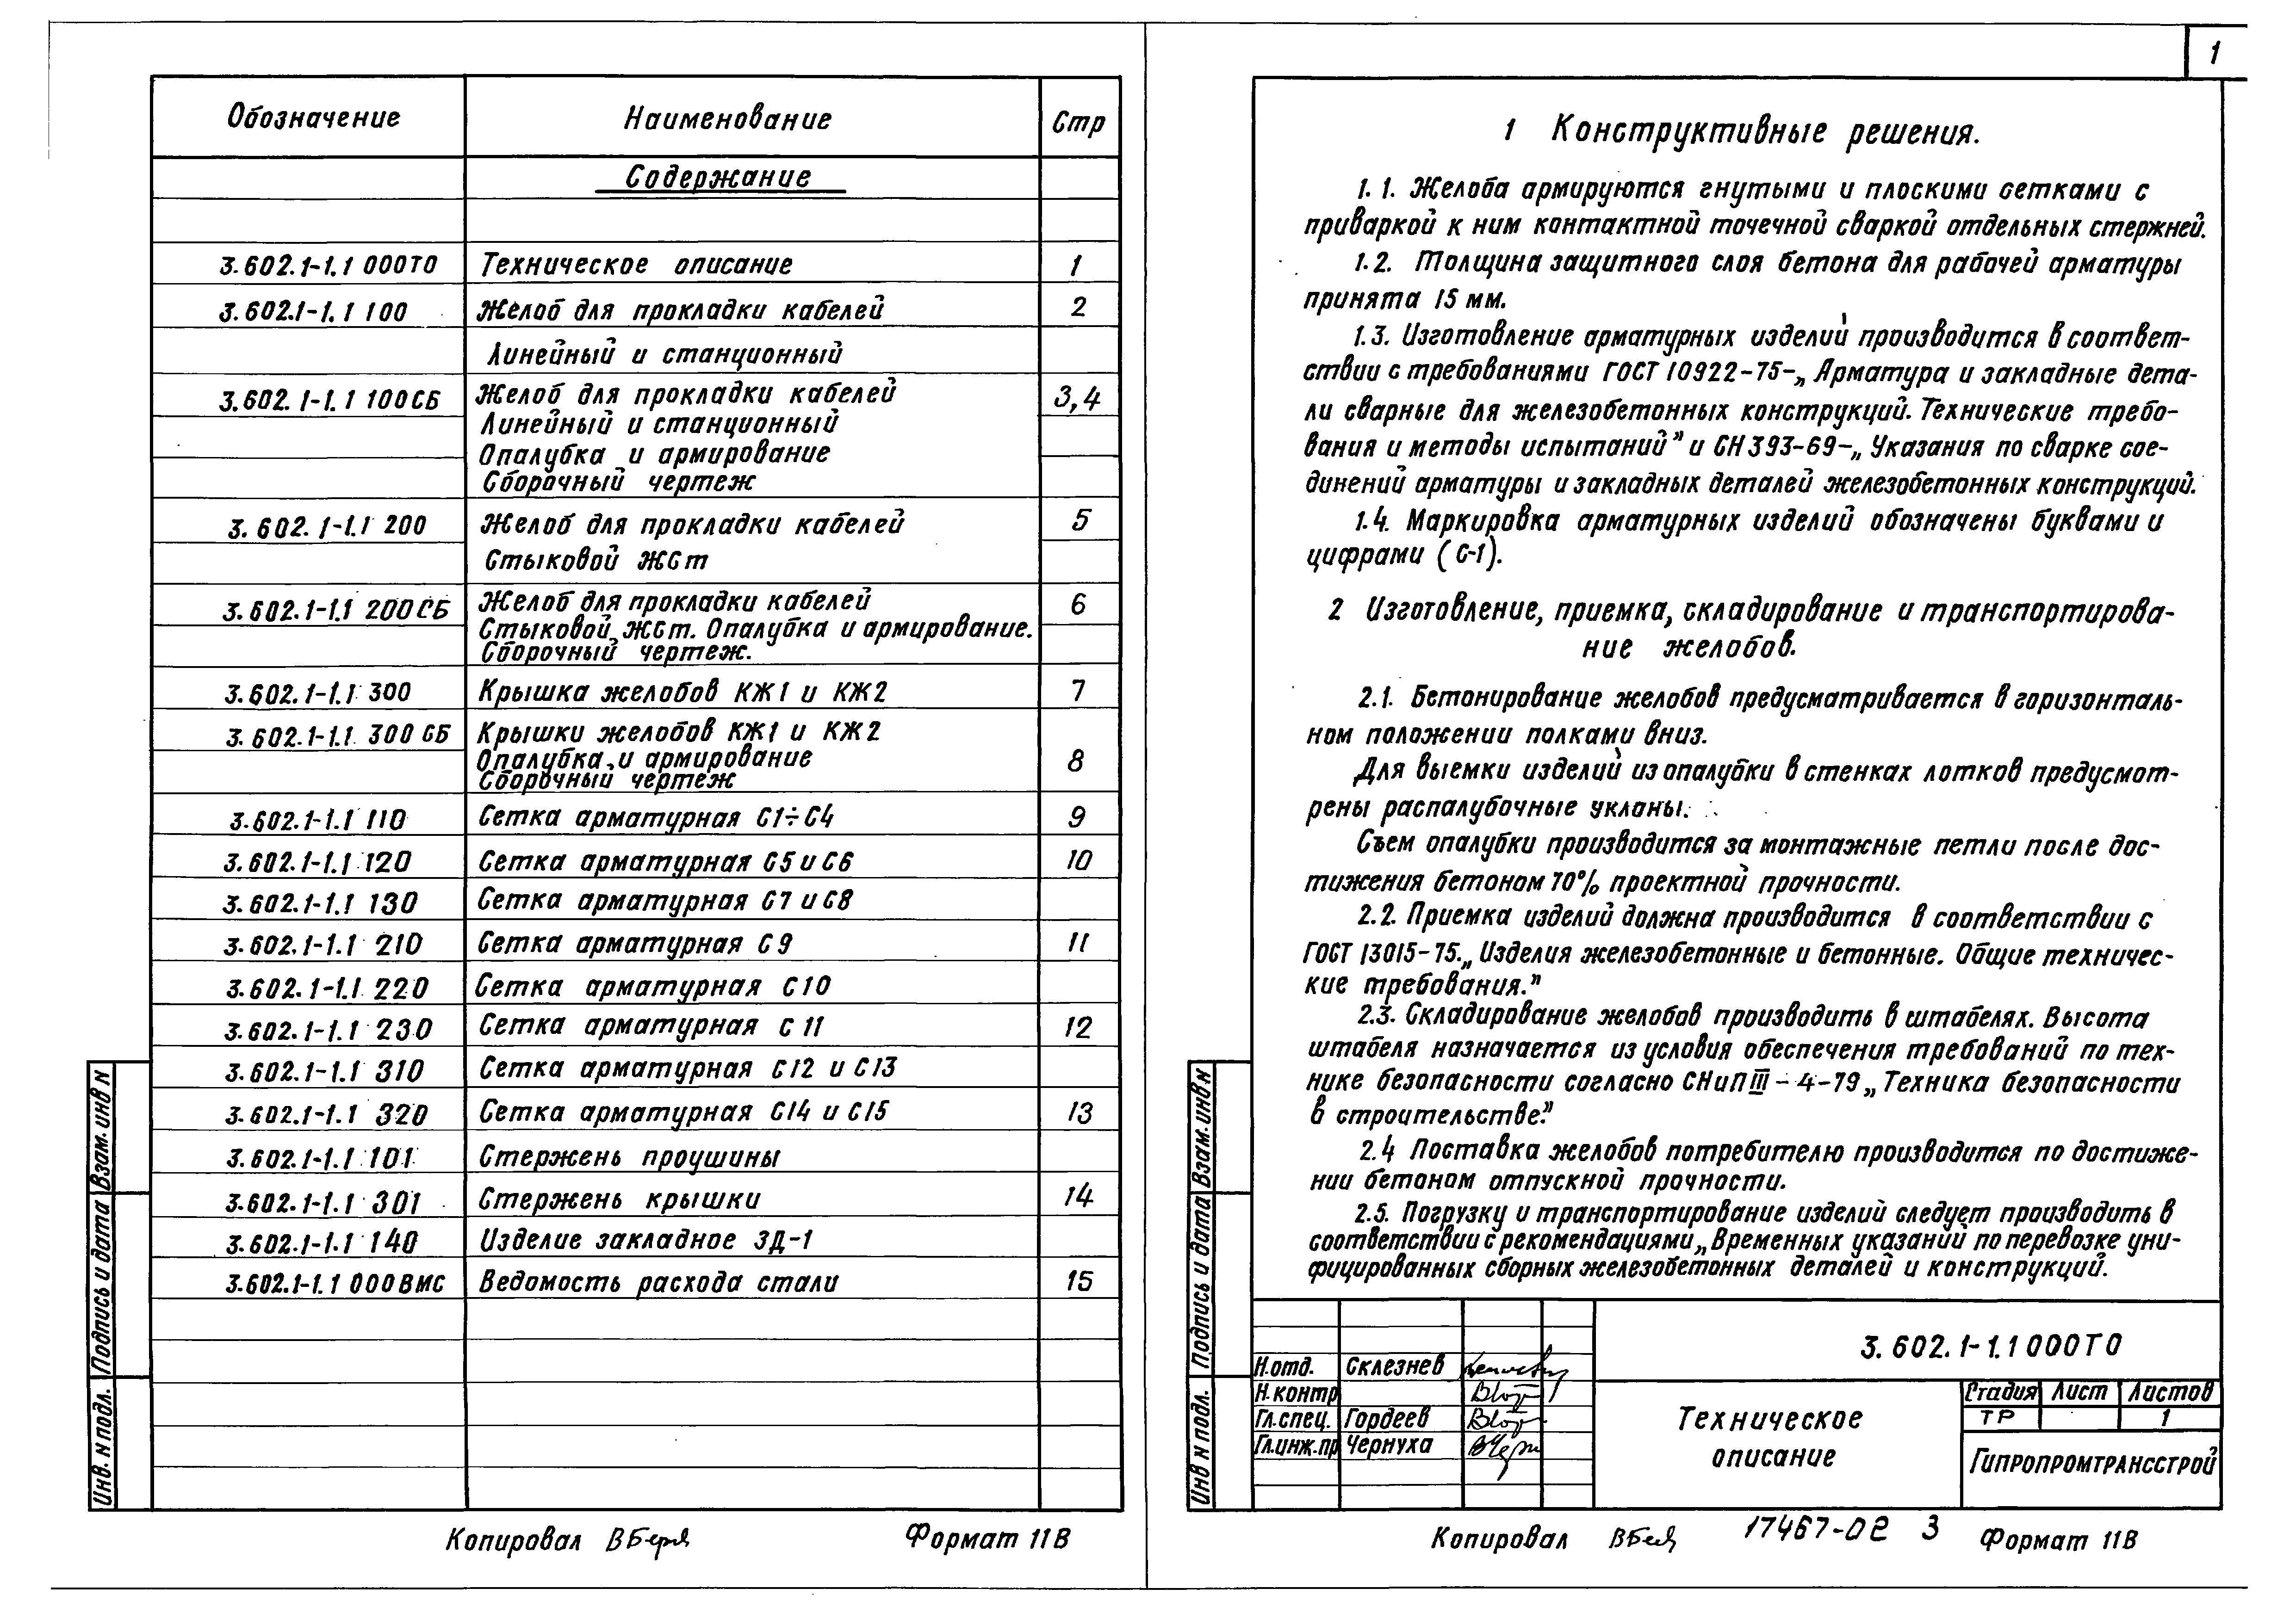 Обозначение Наименование Стр
Содержание
3.602.1-1.1 000ТО Техническое описание 1
3.602.1-1.1 100 Желоб для прокладки кабелей 2
Линейный и станционный
3.602.1-1.1 100СБ Желоб для прокладки кабелей 3,4
Линейный и станционный
Опалубка и армирование
Сборочный чертеж
3.602.1-1.1 200 Желоб для прокладки кабелей 5
Стыковой ЖСт
3.602.1-1.1 200СБ Желоб для прокладки кабелей 6
Стыковой ЖСт. Опалубка и армирование.
Сборочный чертеж.
3.602.1-1.1 300 Крышка желобов КЖ1 и КЖ2 7
3.602.1-1.1 300 СБ Крышки желобов КЖ1 и КЖ2
Опалубка и армирование 8
Сборочный чертеж
3.602.1-1.1 110 Сетка арматурная С1÷С4 9
3.602.1-1.1 120 Сетка арматурная С5 и С6 10
3.602.1-1.1 130 Сетка арматурная С7 и С8
3.602.1-1.1 210 Сетка арматурная С9 11
3.602.1-1.1 220 Сетка арматурная С10
3.602.1-1.1 230 Сетка арматурная С11 12
3.602.1-1.1 310 Сетка арматурная С12 и С13
3.602.1-1.1 320 Сетка арматурная С14 и С15 13
3.602.1-1.1 101 Стержень проушины
3.602.1-1.1 301 Стержень крышки 14
3.602.1-1.1 140 Изделие закладное ЗД-1
3.602.1-1.1 000ВМС Ведомость расхода стали 15
Взам. инв N
Подпись и дата
Инв. N подл.
Копировал Формат 11В
1
1 Конструктивные решения.
1.1. Желоба армируются гнутыми и плоскими сетками с
приваркой к ним контактной точечной сваркой отдельных стержней.
1.2. Толщина защитного слоя бетона для рабочей арматуры
принята 15 мм.
1.3. Изготовление арматурных изделий производится в соответ-
ствии с требованиями ГОСТ 10922-75-„Арматура и закладные дета-
ли сварные для железобетонных конструкций. Технические требо-
вания и методы испытаний" и СН 393-69-„Указания по сварке сое-
динений арматуры и закладных деталей железобетонных конструкций.
1.4. Маркировка арматурных изделий обозначены буквами и
цифрами (С-1).
2 Изготовление, приемка, складирование и транспортирова-
ние желобов.
2.1. Бетонирование желобов предусматривается в горизонталь-
ном положении полками вниз.
Для выемки изделий из опалубки в стенках лотков предусмот-
рены распалубочные уклоны.
Съем опалубки производится за монтажные петли после дос-
тижения бетоном 70% проектной прочности.
2.2. Приемка изделий должна производится в соответствии с
ГОСТ 13015-75.„Изделия железобетонные и бетонные. Общие техничес-
кие требования."
2.3. Складирование желобов производить в штабелях. Высота
штабеля назначается из условия обеспечения требований по тех-
нике безопасности согласно СНиП III-4-79 „Техника безопасности
в строительстве."
2.4 Поставка желобов потребителю производится по достиже-
нии бетоном отпускной прочности.
2.5. Погрузку и транспортирование изделий следует производить в
соответствии с рекомендациями „Временных указаний по перевозке уни-
фицированных сборных железобетонных деталей и конструкций.
3.602.1-1.1 000ТО
Н.отд. Склезнев
Н.контр
Гл.спец. Гордеев
Гл.инж.пр Чернуха
Техническое
описание
Стадия Лист Листов
ТР 1
Гипропромтрансстрой
Взам. инв N
Подпись и дата
Инв N подл.
Копировал 17467-02 3 Формат 11В